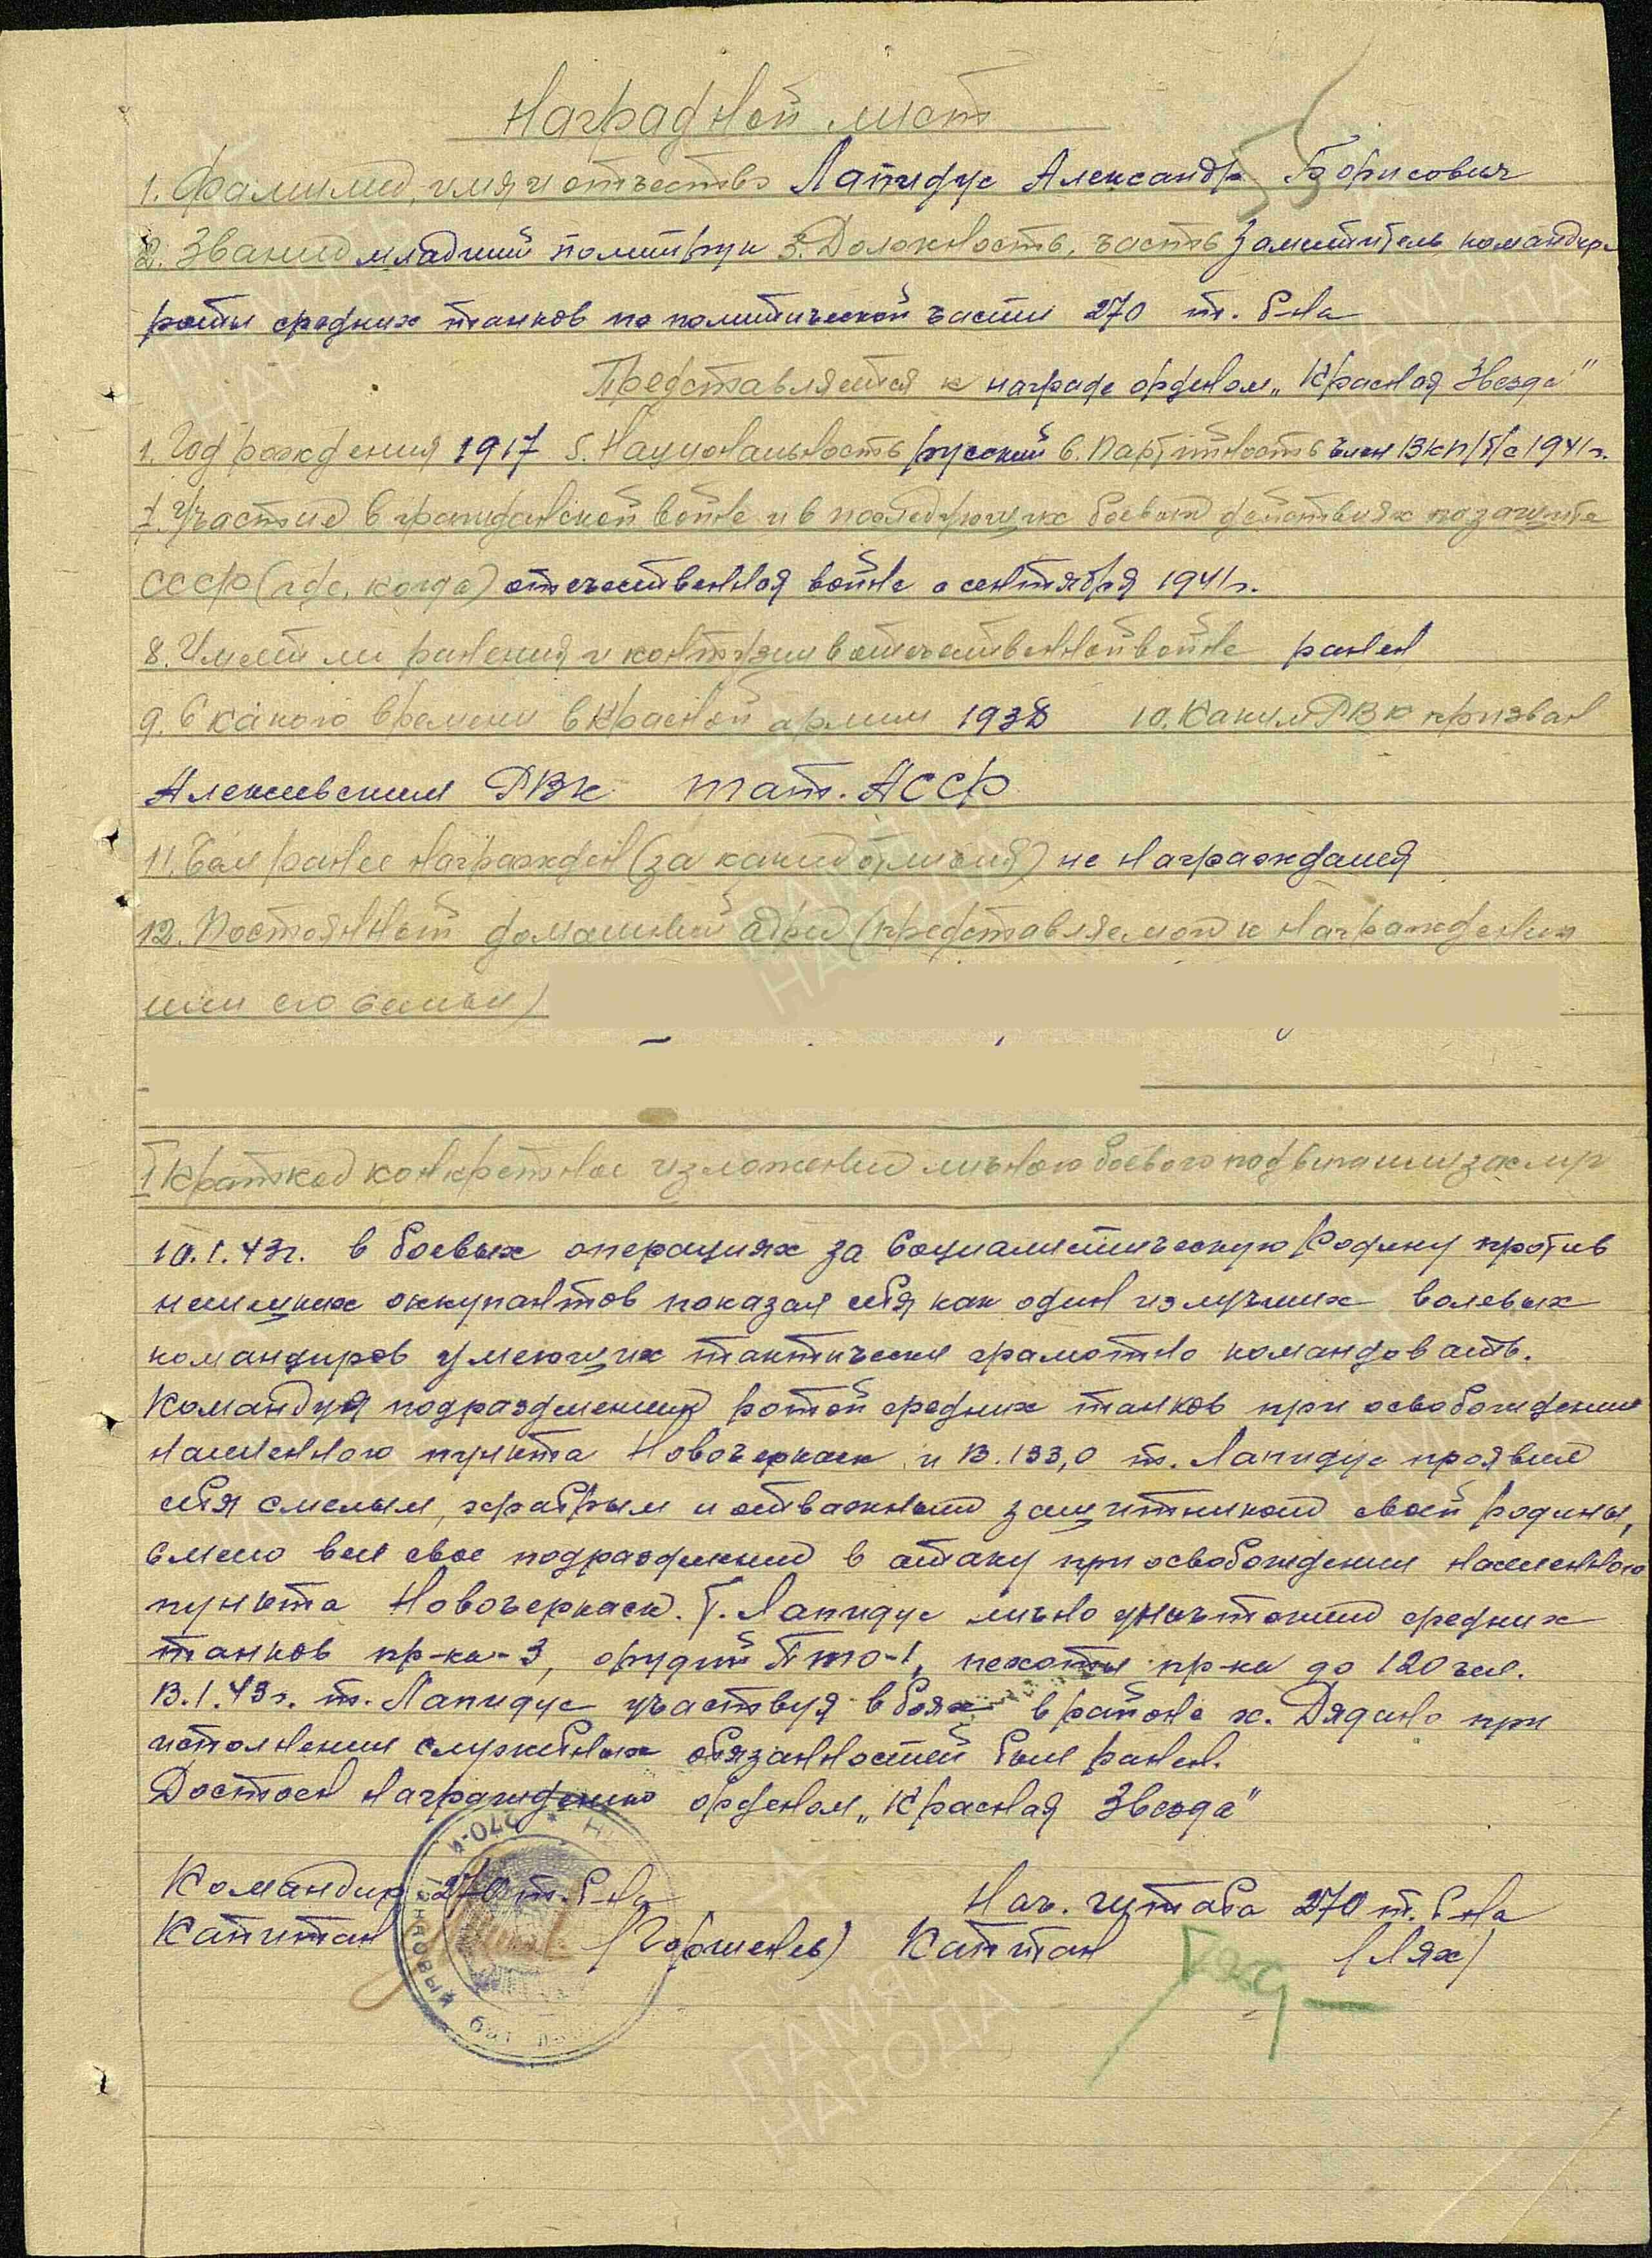 Наградной лист
1. Фамилия, имя и отчество Лапидус Александр Борисович
2. Звание младший политрук 3. Должность, часть Заместитель командира
роты средних танков по политической части 270 т. б-на
Представляется к награде орденом „Красная Звезда"
1. Год рождения 1917 5. Национальность русский 6. Партийность член ВКП/б/ с 1941 г.
7. Участие в гражданской войне и в последующих боевых действиях по защите
СССР (где, когда) отечественная война с сентября 1941 г.
8. Имеет ли ранения и контузии в отечественной войне ранен
9. С какого времени в Красной армии 1938 10. Каким РВК призван
Алексеевским РВК Тат. АССР
11. Чем ранее награжден (за какие отличия) не награждался
12. Постоянный домашний адрес (представляемого к награждению
или его семьи)
I Краткое конкретное изложение личного боевого подвига или заслуг
10.1.43г. в боевых операциях за Социалистическую Родину против
немецких оккупантов показал себя как один из лучших волевых
командиров умеющих тактически грамотно командовать.
Командуя подразделением ротой средних танков при освобождении
населенного пункта Новочеркаск и В. 133,0 т. Лапидус проявил
себя смелым, храбрым и отважным защитником своей родины,
смело вел свое подразделение в атаку при освобождении населенного
пункта Новочеркаск. Т. Лапидус лично уничтожил средних
танков пр-ка-3, орудий ПТО-1, пехоты пр-ка до 120 чел.
13.1.43г. т. Лапидус участвуя в боях в районе х. Дядино при
исполнении служебных обязанностей был ранен.
Достоен награждению орденом „Красная Звезда"
Командир 270 т. б-на Нач. штаба 270 т. б-на
Капитан (Горшень) Капитан (Лях)
270-й танковый бат
ПАМЯТЬ НАРОДА